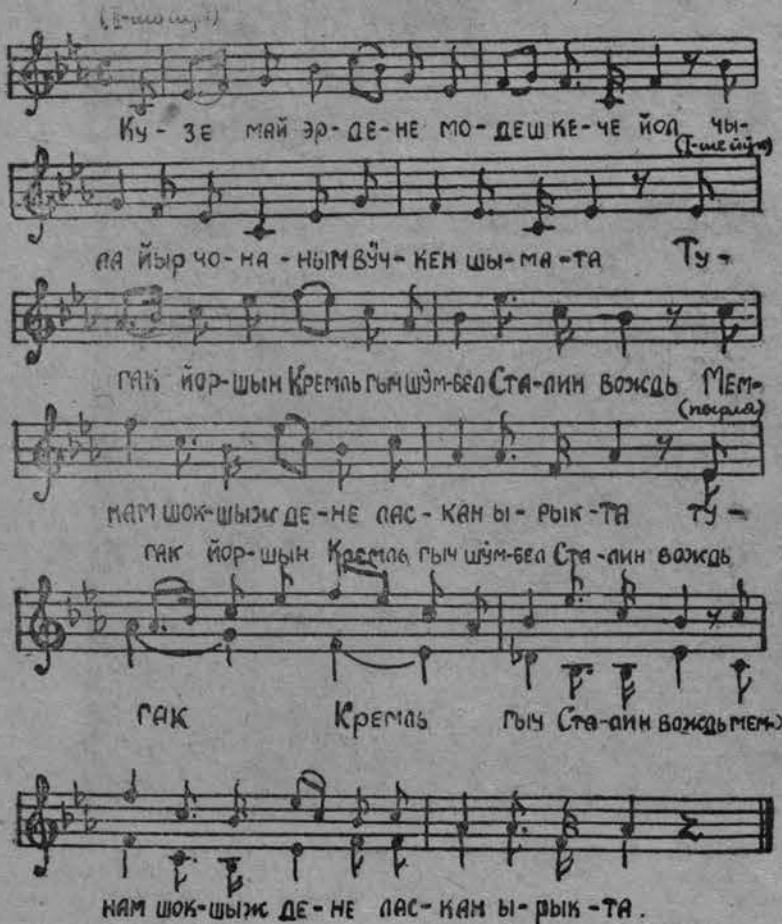 (I-ше йӱк)
Ку-зе май эр-де-не мо-деш ке-че йол чы-
(I-ше йӱк)
ла йыр чо-на-ным вӱч-кен шы-ма-та Ту-
гак йор-шын Кремль гыч шӱм-бел Ста-лин вождь Мем-
(пырля)
нам шок-шыж де-не лас-кан ы-рык-та ту-
гак йор-шын Кремль гыч шӱм-бел Ста-лин вождь
гак Кремль гыч Ста-лин вождь мем-
нам шок-шыж де-не лас-кан ы-рык-та.